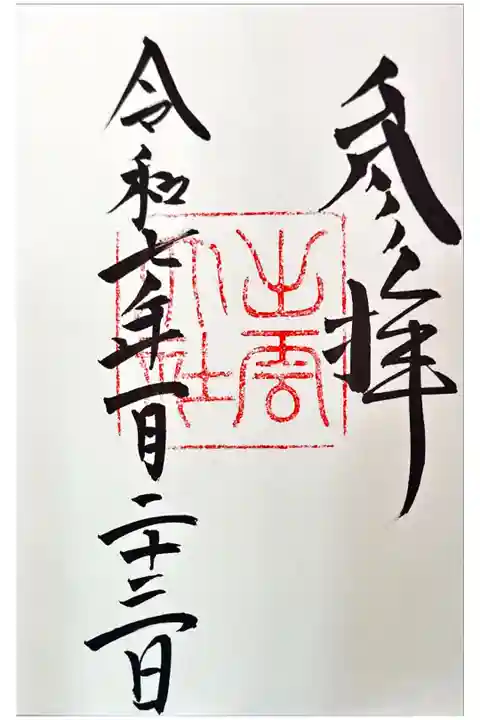 参拝
出雲大社
令和七年一月二十三日